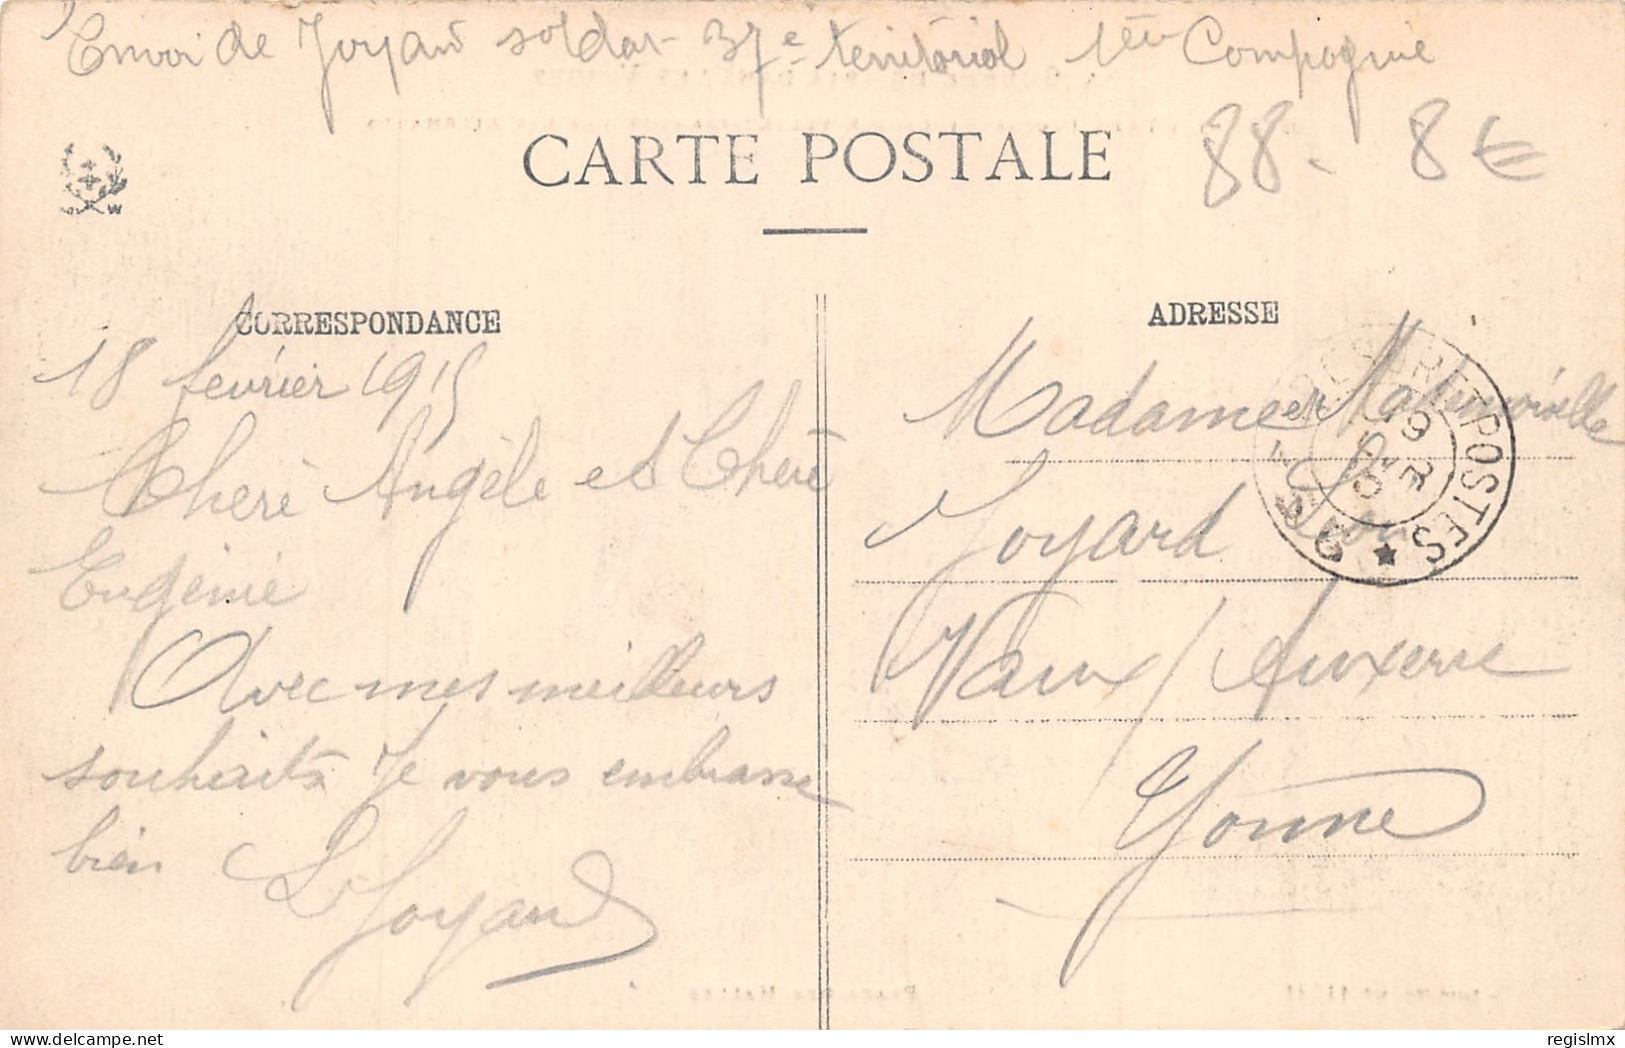 Envoi de Joyard soldat 37e territorial 1ère Compagnie
CARTE POSTALE
88 - 8€
W
CORRESPONDANCE
18 février 1915
Chère Angèle et Chère
Eugénie
Avec mes meilleurs
souhaits Je vous embrasse
bien
L Joyard
ADRESSE
Madame et Mademoiselle
Joyard
Vaux / Auxerre
Yonne
POSTES
19
regislmx